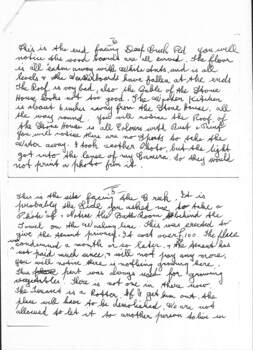 This is the end facing Boat Bush Rd you will
notice the wood boards are all curved. The floor
is all eaten away with White Ants, and is all
levels & the boards have fallen, at the ends
The Roof is very bad, also the Gable of the Stone
House, looks not too good. The Wooden Kitchen
is about 6 inches away from the Stone house, all
the way round. You will notice the Roof of
the Stone House is all Colours with Rust & Dirt
You will notice there are no Spouts to take the
Water away. I took another Photo, but the light
got into the lense of my Camera so they would
not print a photo from it.
This is the side facing the Creek. It is
probably the Side you asked me to take a
Photo of. Notice the Bath Room behind the
Towel on the line. This was erected to
give the tenant privacy. It cost over £100. The place
condemned a month or so later. & the tenant has
not paid much since, & will not pay any more.
You will notice there is nothing growing here.
This part was always used for growing
vegetables. There is not one in there now
The Tenant is a Rotter. If I get him out the
place will have to be demolished. We are not
allowed to let it to another person to live in